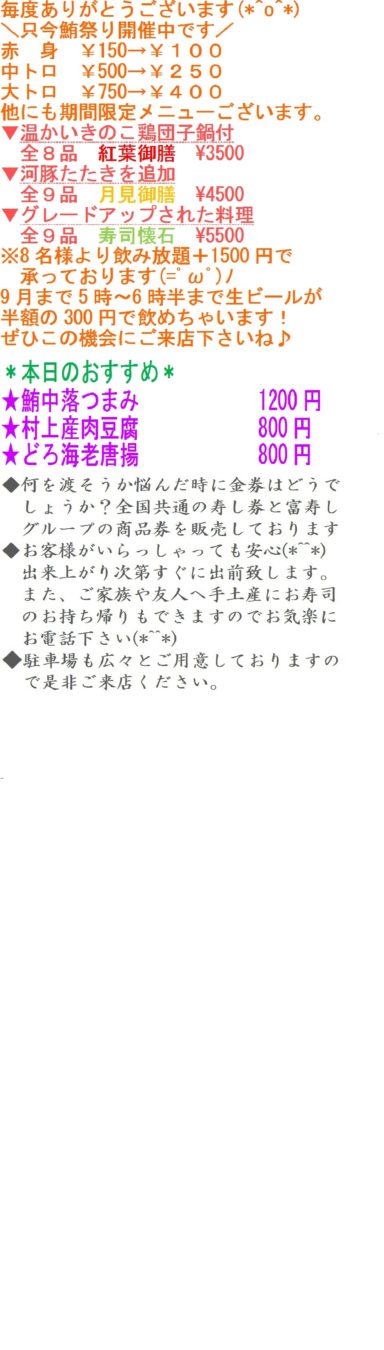 毎度ありがとうございます(*^o^*)
＼只今鮪祭り開催中です／
赤　身　￥150→￥１００
中トロ　￥500→￥２５０
大トロ　￥750→￥４００
他にも期間限定メニューございます。
▼温かいきのこ鶏団子鍋付
全８品　紅葉御膳　¥3500
▼河豚たたきを追加
全９品　月見御膳　¥4500
▼グレードアップされた料理
全９品　寿司懐石　¥5500
※8名様より飲み放題＋1500円で
承っております(=ﾟωﾟ)ﾉ
9月まで5時～6時半まで生ビールが
半額の300円で飲めちゃいます！
ぜひこの機会にご来店下さいね♪
＊本日のおすすめ＊
★鮪中落つまみ　1200円
★村上産肉豆腐　800円
★どろ海老唐揚　800円
◆何を渡そうか悩んだ時に金券はどうで
しょうか？全国共通の寿し券と富寿し
グループの商品券を販売しております
◆お客様がいらっしゃっても安心(*^^*)
出来上がり次第すぐに出前致します。
また、ご家族や友人へ手土産にお寿司
のお持ち帰りもできますのでお気楽に
お電話下さい(*^^*)
◆駐車場も広々とご用意しておりますの
で是非ご来店ください。